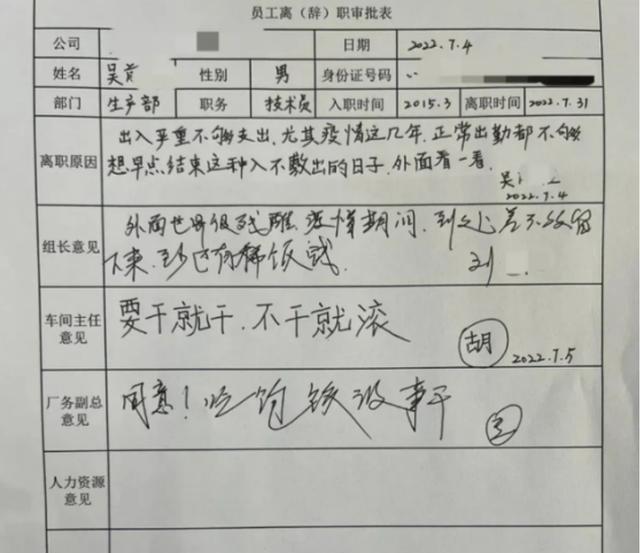 员工离（辞）职审批表
公司 日期 2022.7.4
姓名 吴 性别 男 身份证号码
部门 生产部 职务 技术员 入职时间 2015.3 离职时间 2022.7.31
出入严重不够支出，尤其疫情这几年，正常出勤都不够
离职原因 想早点结束这种入不敷出的日子，外面看一看。
吴
2022.7.4
外面世界很残酷，疫情期间，到处差不多 留
组长意见 下来，至少还有稀饭 刘
车间主任
意见
要干就干，不干就滚 胡 2022.7.5
厂务副总
意见
同意！吃饱 没事干
人力资源
意见